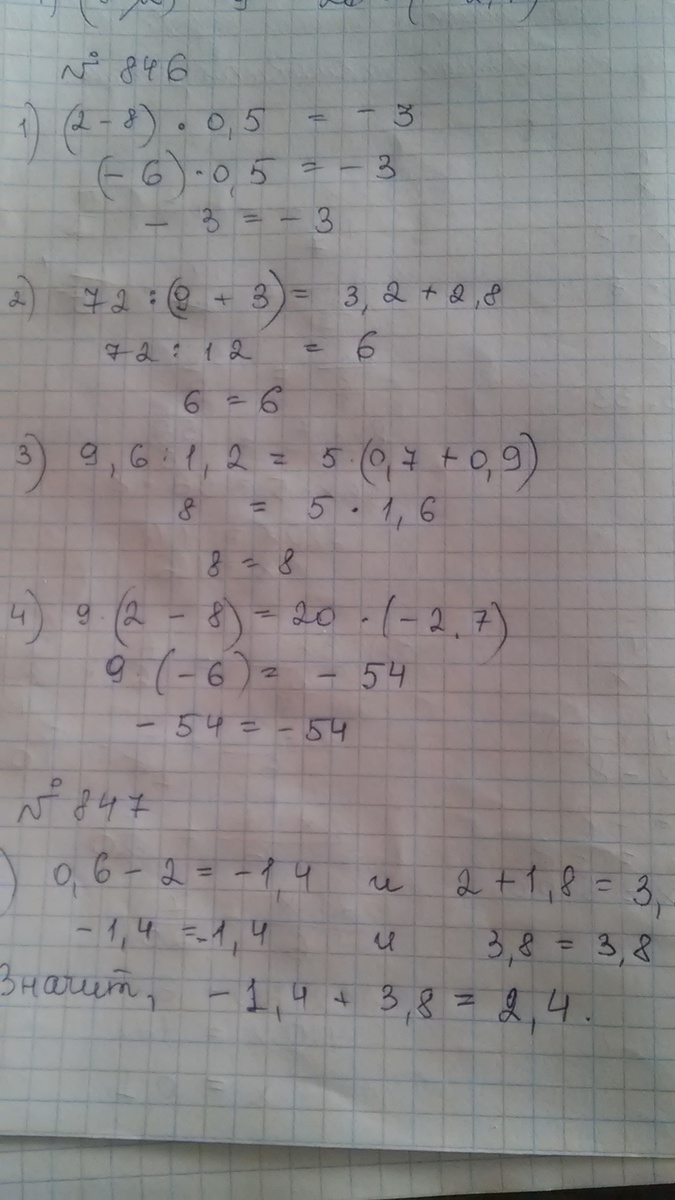 № 846
1) (2 - 8) · 0,5 = - 3
(- 6) · 0,5 = - 3
- 3 = - 3
2) 72 : (9 + 3) = 3,2 + 2,8
72 : 12 = 6
6 = 6
3) 9,6 : 1,2 = 5 · (0,7 + 0,9)
8 = 5 · 1,6
8 = 8
4) 9 · (2 - 8) = 20 · (- 2,7)
9 · (- 6) = - 54
- 54 = - 54
№ 847
) 0,6 - 2 = -1,4 и 2 + 1,8 = 3,
-1,4 = -1,4 и 3,8 = 3,8
Значит, - 1,4 + 3,8 = 2,4.